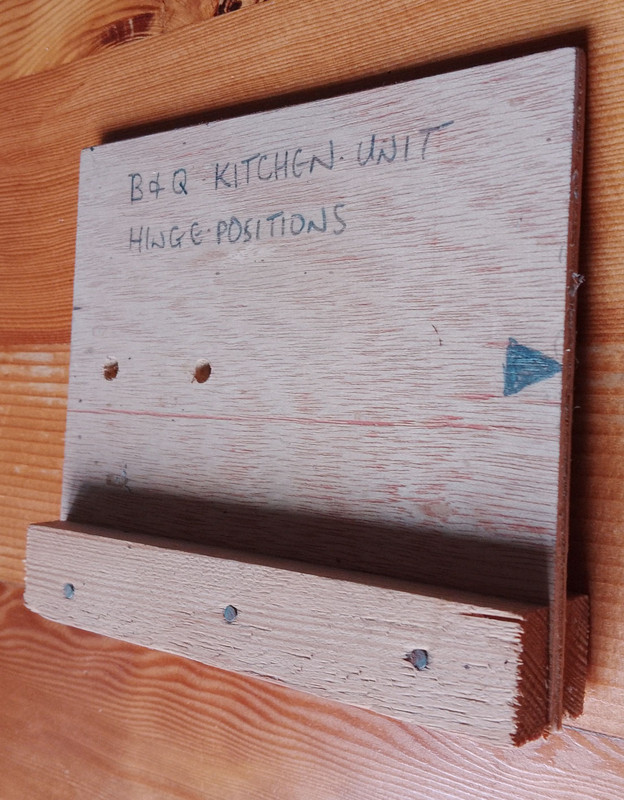 B & Q · KITCHEN · UNIT
HINGE · POSITIONS